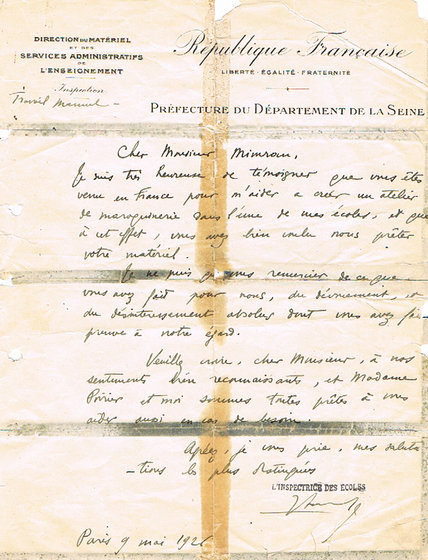 DIRECTION DU MATÉRIEL
ET DES
SERVICES ADMINISTRATIFS
DE
L'ENSEIGNEMENT
Inspection
Travail Manuel
République Française
LIBERTÉ - ÉGALITÉ - FRATERNITÉ
PRÉFECTURE DU DÉPARTEMENT DE LA SEINE
Cher Monsieur Mimran,
Je suis très heureuse de témoigner que vous êtes
venu en France pour m'aider a créer un atelier
de maroquinerie dans l'une de mes écoles, et que
à cet effet, vous avez bien voulu nous prêter
votre matériel.
Je ne puis que vous remercier de ce que
vous avez fait pour nous, du dévouement, et
du désintéressement absolu dont vous avez fait
preuve à notre égard.
Veuillez croire, cher Monsieur, à nos
sentiments bien reconnaissants, et Madame
Poirier et moi sommes toutes prêtes à vous
aider aussi en cas de besoin.
Agréez, je vous prie, mes saluta
-tions les plus distinguées
L'INSPECTRICE DES ÉCOLES
Paris 9 mai 192